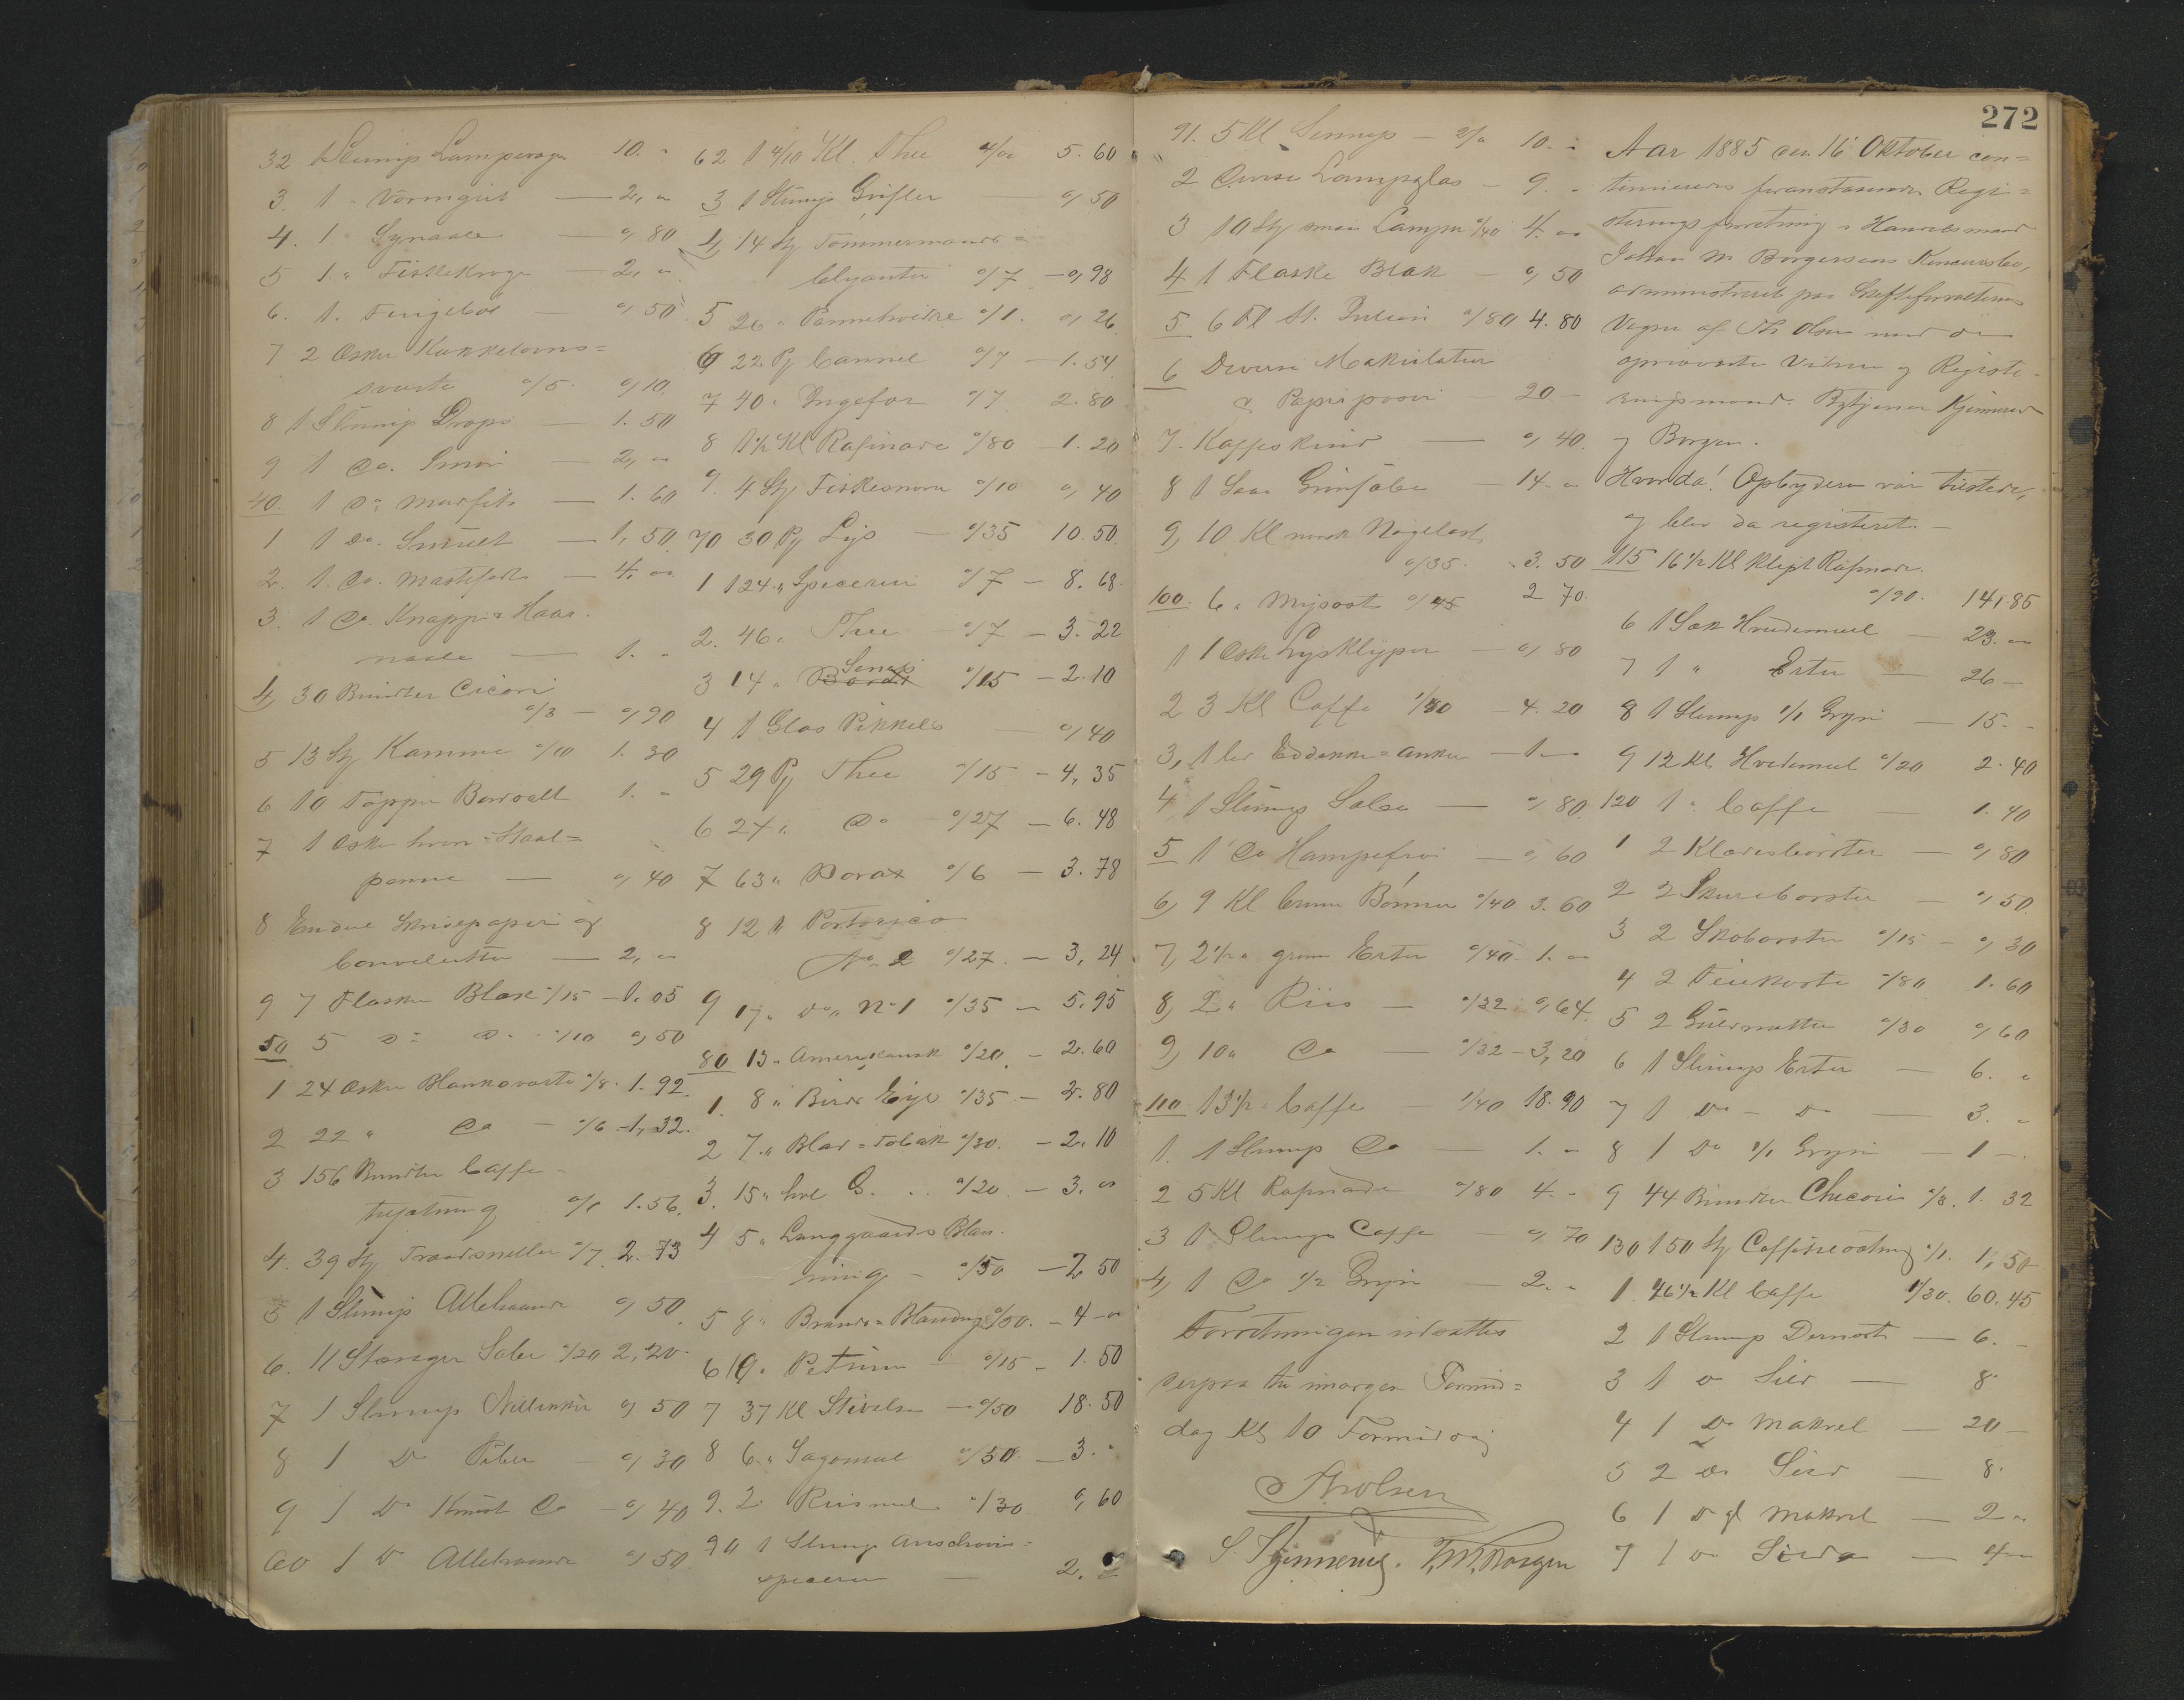 32 1 Slump Lampevæger 10. "
3. 1 " Vormgut — 2, "
4. 1 " Synaale — 0, 80
5 1 " Fiskekroge — 2, "
6. 1. Fingerbøl — 0, 50
7 2 Æsker Kakkelovns=
sværte a/5. 0, 10.
8 1 Slump Drops — 1. 50
9 1 Do. Smør — 2, "
40. 1 Do. — 1. 60
1 1 Do. — 1, 50
2. 1. Do. — 4. "
3. 1 Do Knappe & Haar
naale — 1. "
4, 30 Bundter Cicori
a/3 — 0, 90
5 13 Stk Kamme a/10 1. 30
6 10 Toppe 1. "
7 1 Æske Staal=
penne — 0, 40
8 Endeel Skrivepapir og
Convolutter — 2, "
9 7 Flasker Blæk a/15 — 1. 05
50 5 Do Do a/10 0, 50
1 24 Æsker Blanksværte a/8. 1. 92.
2 22 " Do — a/6 — 1, 32.
3 156 Bundter Caffe=
tilsætning a/1 1. 56.
4. 39 Stk Traadsneller a/7. 2. 73
5 1 Slump Allehaande 0, 50
6. 11 Stænger Sæbe a/20 2, 20
7 1 Slump Nelliker 0, 50
8 1 Do Peber — 0, 30
9 1 Do Knust Do — 0, 40
60 1 Do Allehaande 0, 50
62 1 4/10 Kl. Thee 4/00 5. 60
3 1 Slump Grifler — 0, 50
4, 14 Stk Tømmermands=
blyanter a/7 — 0, 98
5 26 " a/1. 0, 26.
6 22 Pk Cannel a/7 — 1. 54
7 40 " Ingefær a/7 2. 80
8 1 1/2 Kl Rafinade a/80 — 1. 20
9. 4 Stk Fiskesnører a/10 0, 40
70 30 Pk Lys — a/35 10. 50.
1 124 " Specerier a/7 — 8. 68.
2. 46 " Thee — a/7 — 3. 22
3 14 " Senep a/15 — 2. 10
4 1 Glas Pikkels — 0, 40
5 29 Pk Thee a/15 — 4, 35
6 24 " Do a/27 — 6. 48
7 63 " Borax a/6 — 3. 78
8 12 " Portorico
No 2 a/27. — 3, 24
9 17 " Do " No 1 a/35 — 5. 95
80 13 " Amerikansk a/20. — 2. 60
1. 8 " Birds Eye a/35 — 2. 80
2 7. " Blad=Tobak a/30. — 2. 10
3. 15 " hel G. . . a/20 — 3. "
4 5 " Langgaards Blan
ning — a/50 — 2 50
5 8 " Brands=Blanding a/50. — 4 — "
6 10 " Petum — a/15 — 1. 50
7 37 Kl Stivelse — a/50 18. 50
8 6. " Sagomel a/50 — 3. "
9. 2. Riismel a/30 0, 60
90 1 Slump Anschovis=
specerier — 2. "
91. 5 Kl Sennep — 2/00 10. "
2 Diverse Lampeglas — 9. "
3 10 Stk smaa Lamper a/40 4. "
4 1 Flaske Blæk — 0, 50
5. 6 Fl St. Julien a/80 4. 80
6 Diverse Makulatur
& Papirposer — 20 —
7. Kaffeskind — 0, 40.
8 1 Saa Grønsæbe — 14. "
9, 10 Kl norsk Nøgelost
a/35. 3. 50
100. 6 " Mysost a/45 2 70.
1 1 Æske Lysklyper — 0, 80
2 3 Kl Caffe 1/40 — 4. 20
3, 1 lid Eddikke=anker — 1 —
4 1 Slump Sæbe — 0, 80.
5 1 Do Hampefrø — 0, 60
6, 9 Kl brune Bønner a/40 3. 60
7, 2 1/2 " grønne Erter a/40 1. "
8, 2 " Riis — a/32 0, 64.
9, 10 " Do — a/32 — 3, 20
110 13 1/2 " Caffe — 1/40 18. 90
1. 1 Slump Do — 1. "
2 5 Kl Rafinade a/80 4. "
3 1 Slump Caffe — 0, 70
4, 1 Do 1/2 Gryn — 2. "
Forretningen udsattes
derpaa til imorgen Formid=
dag Kl 10 Formiddag
Th Olsen
S. Kjennerud. T. M. Borgen
272
Aar 1885 den 16 Oktober con=
tinueredes foranstaaende Regi=
streringsforretning i Handelsmand
Johan M Borgersens Konkursbo,
administreret paa Skifteforvalterens
Vegne af Th Olsen med de
opnævnte Vidner og Registe=
ringsmænd. Bytjener Kjennerud
og Borgen.
Hvorda! Opbyderen var tilstede,
og blev da registeret. —
115 16 1/2 Kl klipt Rafinade.
a/90. 14,85
6 1 Sæk Hvedemeel — 23. "
7 1 " Erter — 26 —
8 1 Slump 1/1 Gryn — 15. —
9 12 Kl Hvedemeel a/20 2. 40
120 1 " Caffe — 1. 40
1 2 Klædesbørster — 0, 80
2 2 Skurebørster — 0, 50.
3 2 Skobørster a/15 — 0, 30
4 2 Feiekoste a/80 1. 60
5 2 Gulvmatter a/30 0, 60
6 1 Slump Erter — 6. "
7 1 Do — Do — 3. "
8 1 Do 1/1 Gryn — 1 —
9 44 Bundter Checorie a/3. 1. 32
130 150 Stk Caffetilsætning a/1. 1, 50
1 46 1/2 Kl Caffe 1/30. 60. 45
2 1 Slump — 6. —
3 1 Do Sild — 8
4 1 Do Makrel — 20 —
5 2 Do Sild — 8.
6 1 Do gl Makrel — 2 "
7 1 Do Sild —